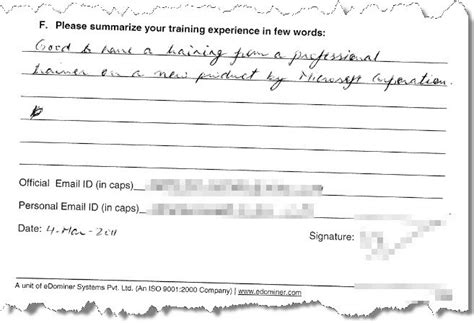 F. Please summarize your training experience in few words:
Good to have a training from a professional
trainer on a new product by Microsoft Corporation.
Official Email ID (in caps)
Personal Email ID (in caps)
Date: 4-Mar-2011
Signature:
A unit of eDominer Systems Pvt. Ltd. (An ISO 9001:2000 Company) | www.edominer.com